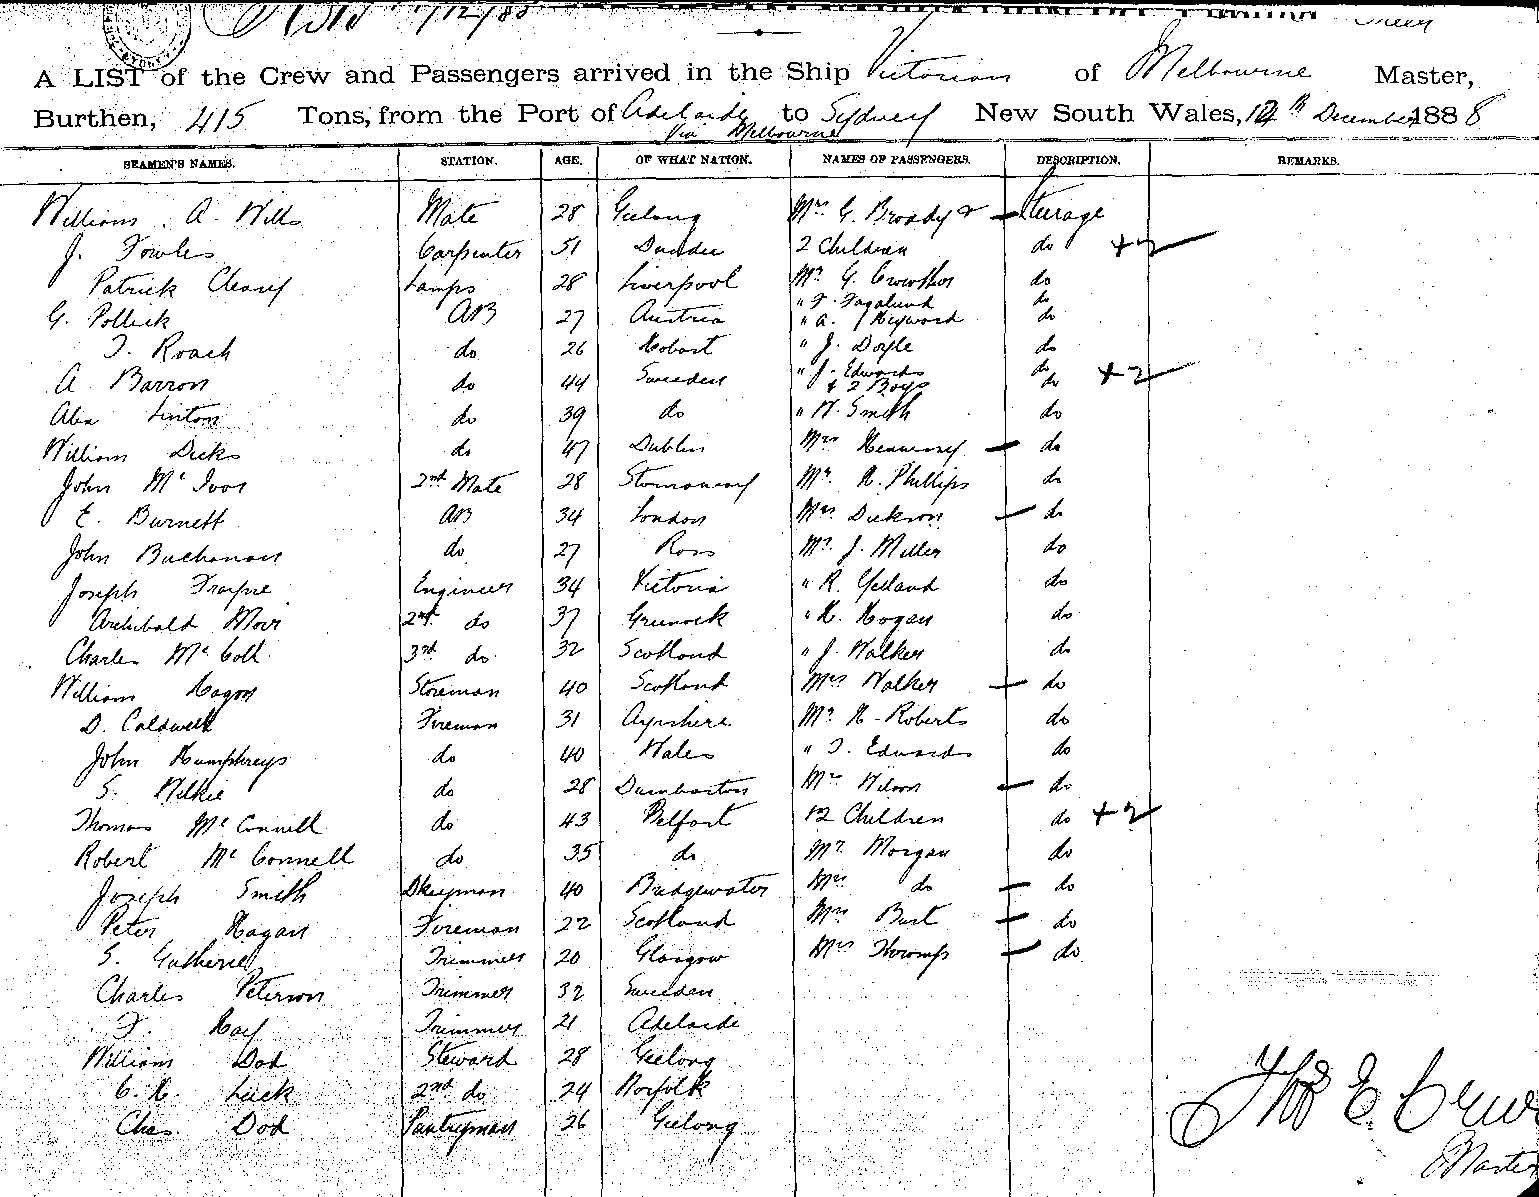 1/12/88
A LIST of the Crew and Passengers arrived in the Ship Victorian of Melbourne Master,
Burthen, 415 Tons, from the Port of Adelaide to Sydney New South Wales, 12th December 1888
Via Melbourne
SEAMEN'S NAMES. STATION. AGE. OF WHAT NATION. NAMES OF PASSENGERS. DESCRIPTION. REMARKS.
William A. Wills Mate 28 Geelong Mrs G. Broady & Steerage
J. Fowles Carpenter 51 Dundee 2 Children do +2
Patrick Cleary Lamps 28 Liverpool Mr G. Crowther do
" F. Fagalund do
G. Pollick AB 27 Austria " A. Heyword do
T. Roach do 26 Hobart " J. Doyle do
A. Barron do 44 Sweeden " J. Edwards do +2
& 2 Boys do
Alex Linton do 39 do " W. Smith do
William Dicks do 47 Dublin Mrs Hennessy do
John McIvor 2nd Mate 28 Stornoway Mr. H. Phillips do
E. Burnett AB 34 London Mrs Dickson do
John Buchanan do 27 Ross Mr. J. Miller do
Joseph Frayne Engineer 34 Victoria " R. Yelland do
Archibald Moir 2nd do 37 Greenock " H. Hogan do
Charles McColl 3rd do 32 Scotland " J. Walker do
William Hagon Storeman 40 Scotland Mrs Walker do
D. Caldwell Fireman 31 Ayrshire Mr. H. Roberts do
John Humphreys do 40 Wales " T. Edwards do
S. Wilkie do 28 Dumbarton Mrs Wilson do
Thomas McConnell do 43 Belfast & 2 Children do +2
Robert McConnell do 35 do Mr. Morgan do
Joseph Smith Dkeyman 40 Bridgewater Mrs do do
Peter Hagan Fireman 22 Scotland Mrs Burt do
S. Gutherie Trimmer 20 Glasgow Mrs Thoromp do
Charles Peterson Trimmer 32 Sweeden
F. Hay Trimmer 21 Adelaide
William Dod Steward 28 Geelong
C. H. Luck 2nd do 24 Norfolk
Chas. Dod Pantryman 26 Geelong
Thos E.
Master